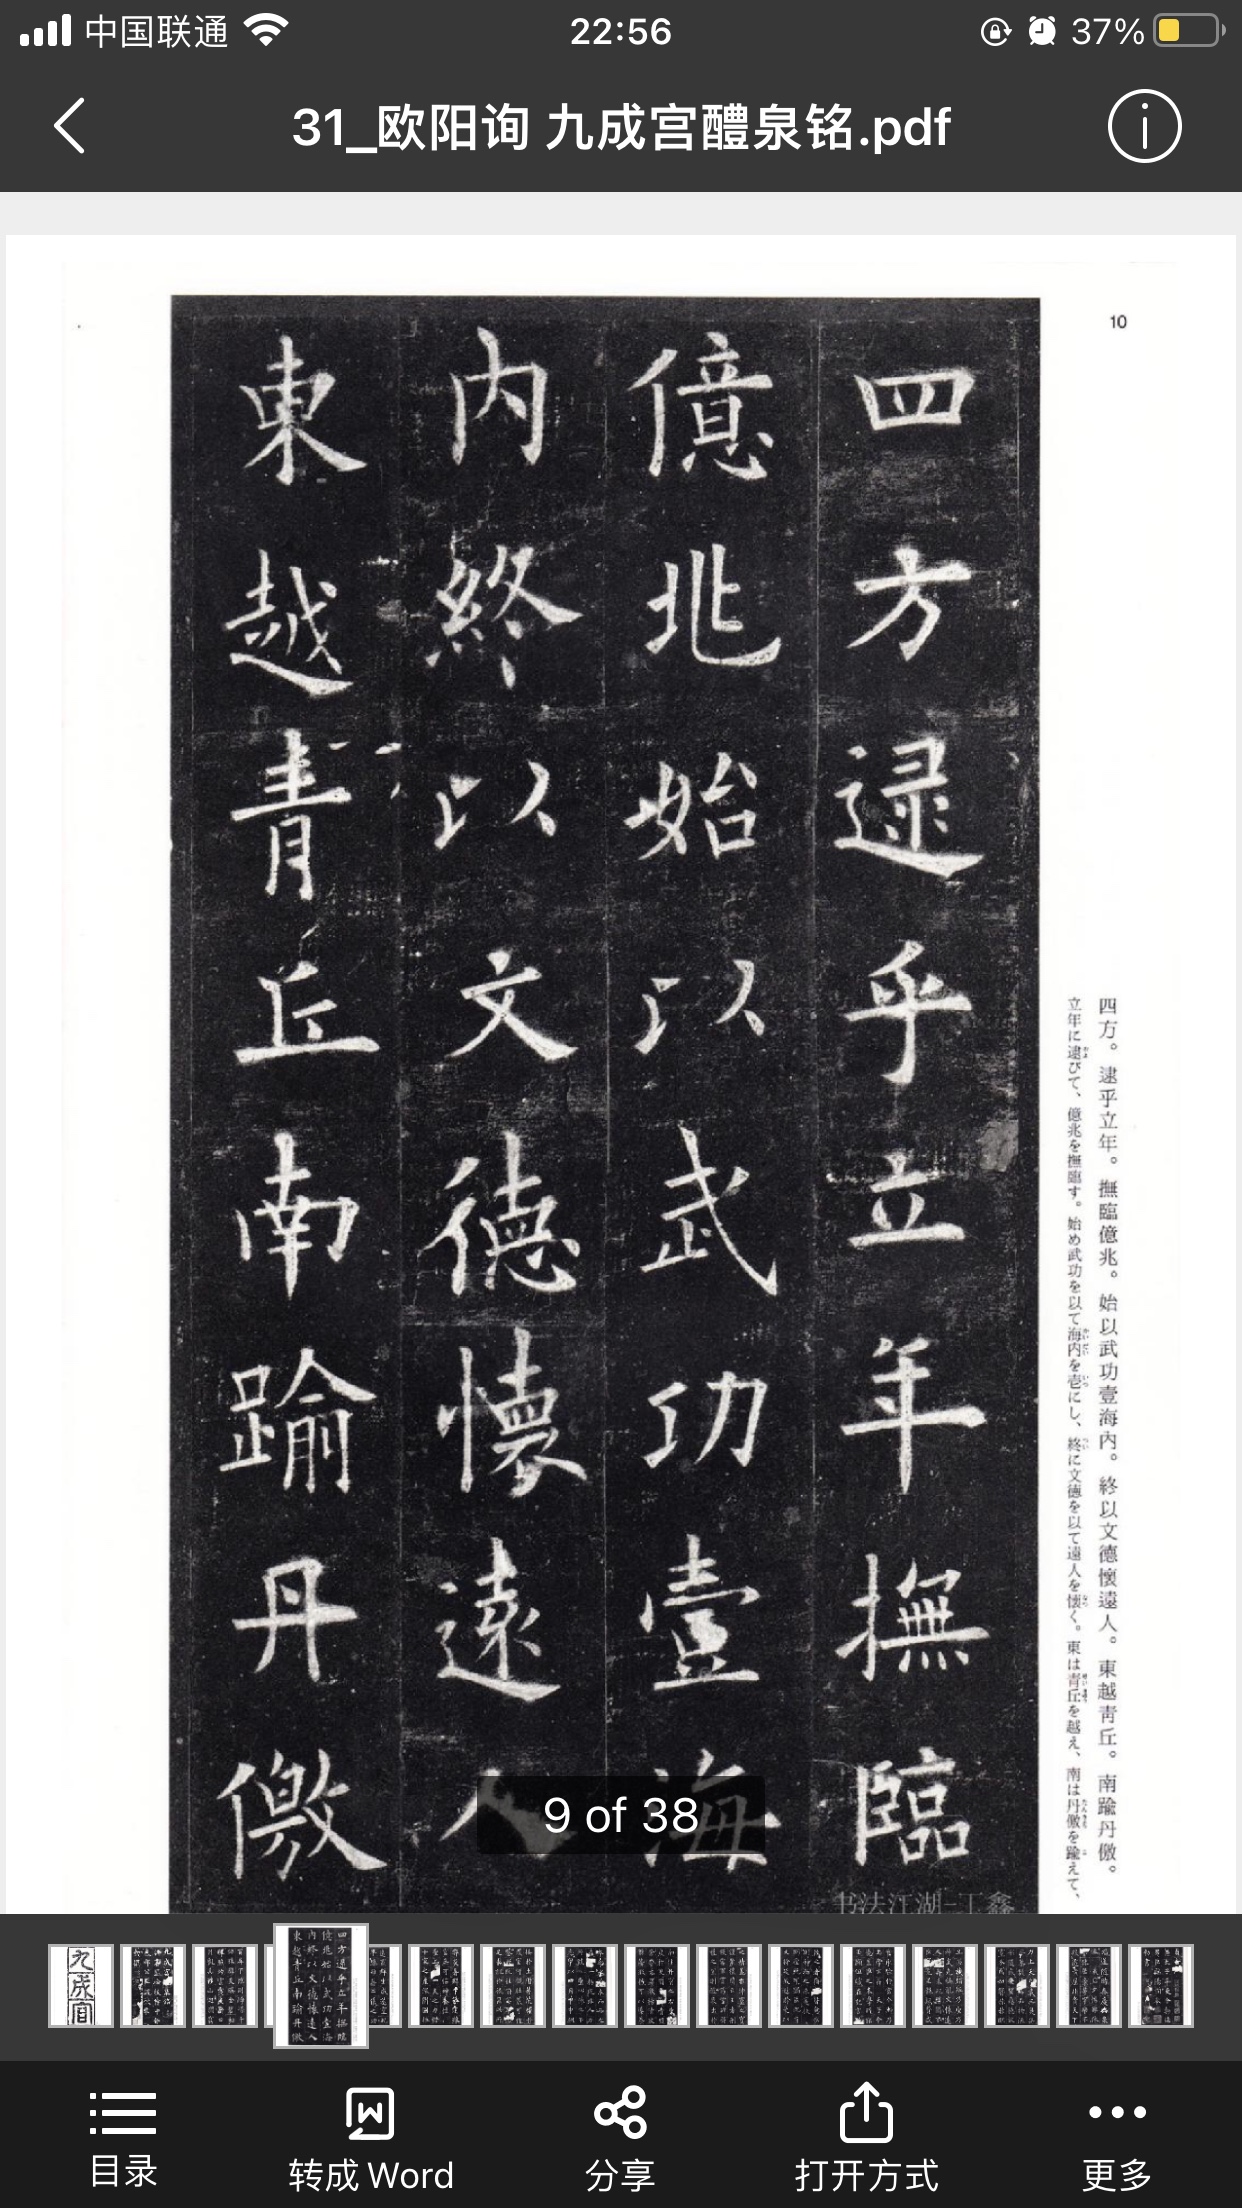 中国联通
22:56
37%
31_欧阳询 九成宫醴泉铭.pdf
10
四方逯乎立年撫臨
億兆始以武功壹海
內終以文德懷遠人
東越青丘南踰丹儌
四方。逮乎立年。撫臨億兆。始以武功壹海内。終以文德懷遠人。東越青丘。南踰丹儌。
立年に逮びて、億兆を撫臨す。始め武功を以て海内を壱にし、終に文徳を以て遠人を懐く。東は青丘を越え、南は丹儌を踰えて、
9 of 38
书法江湖-工鑫
九成宮
目录
转成 Word
分享
打开方式
更多